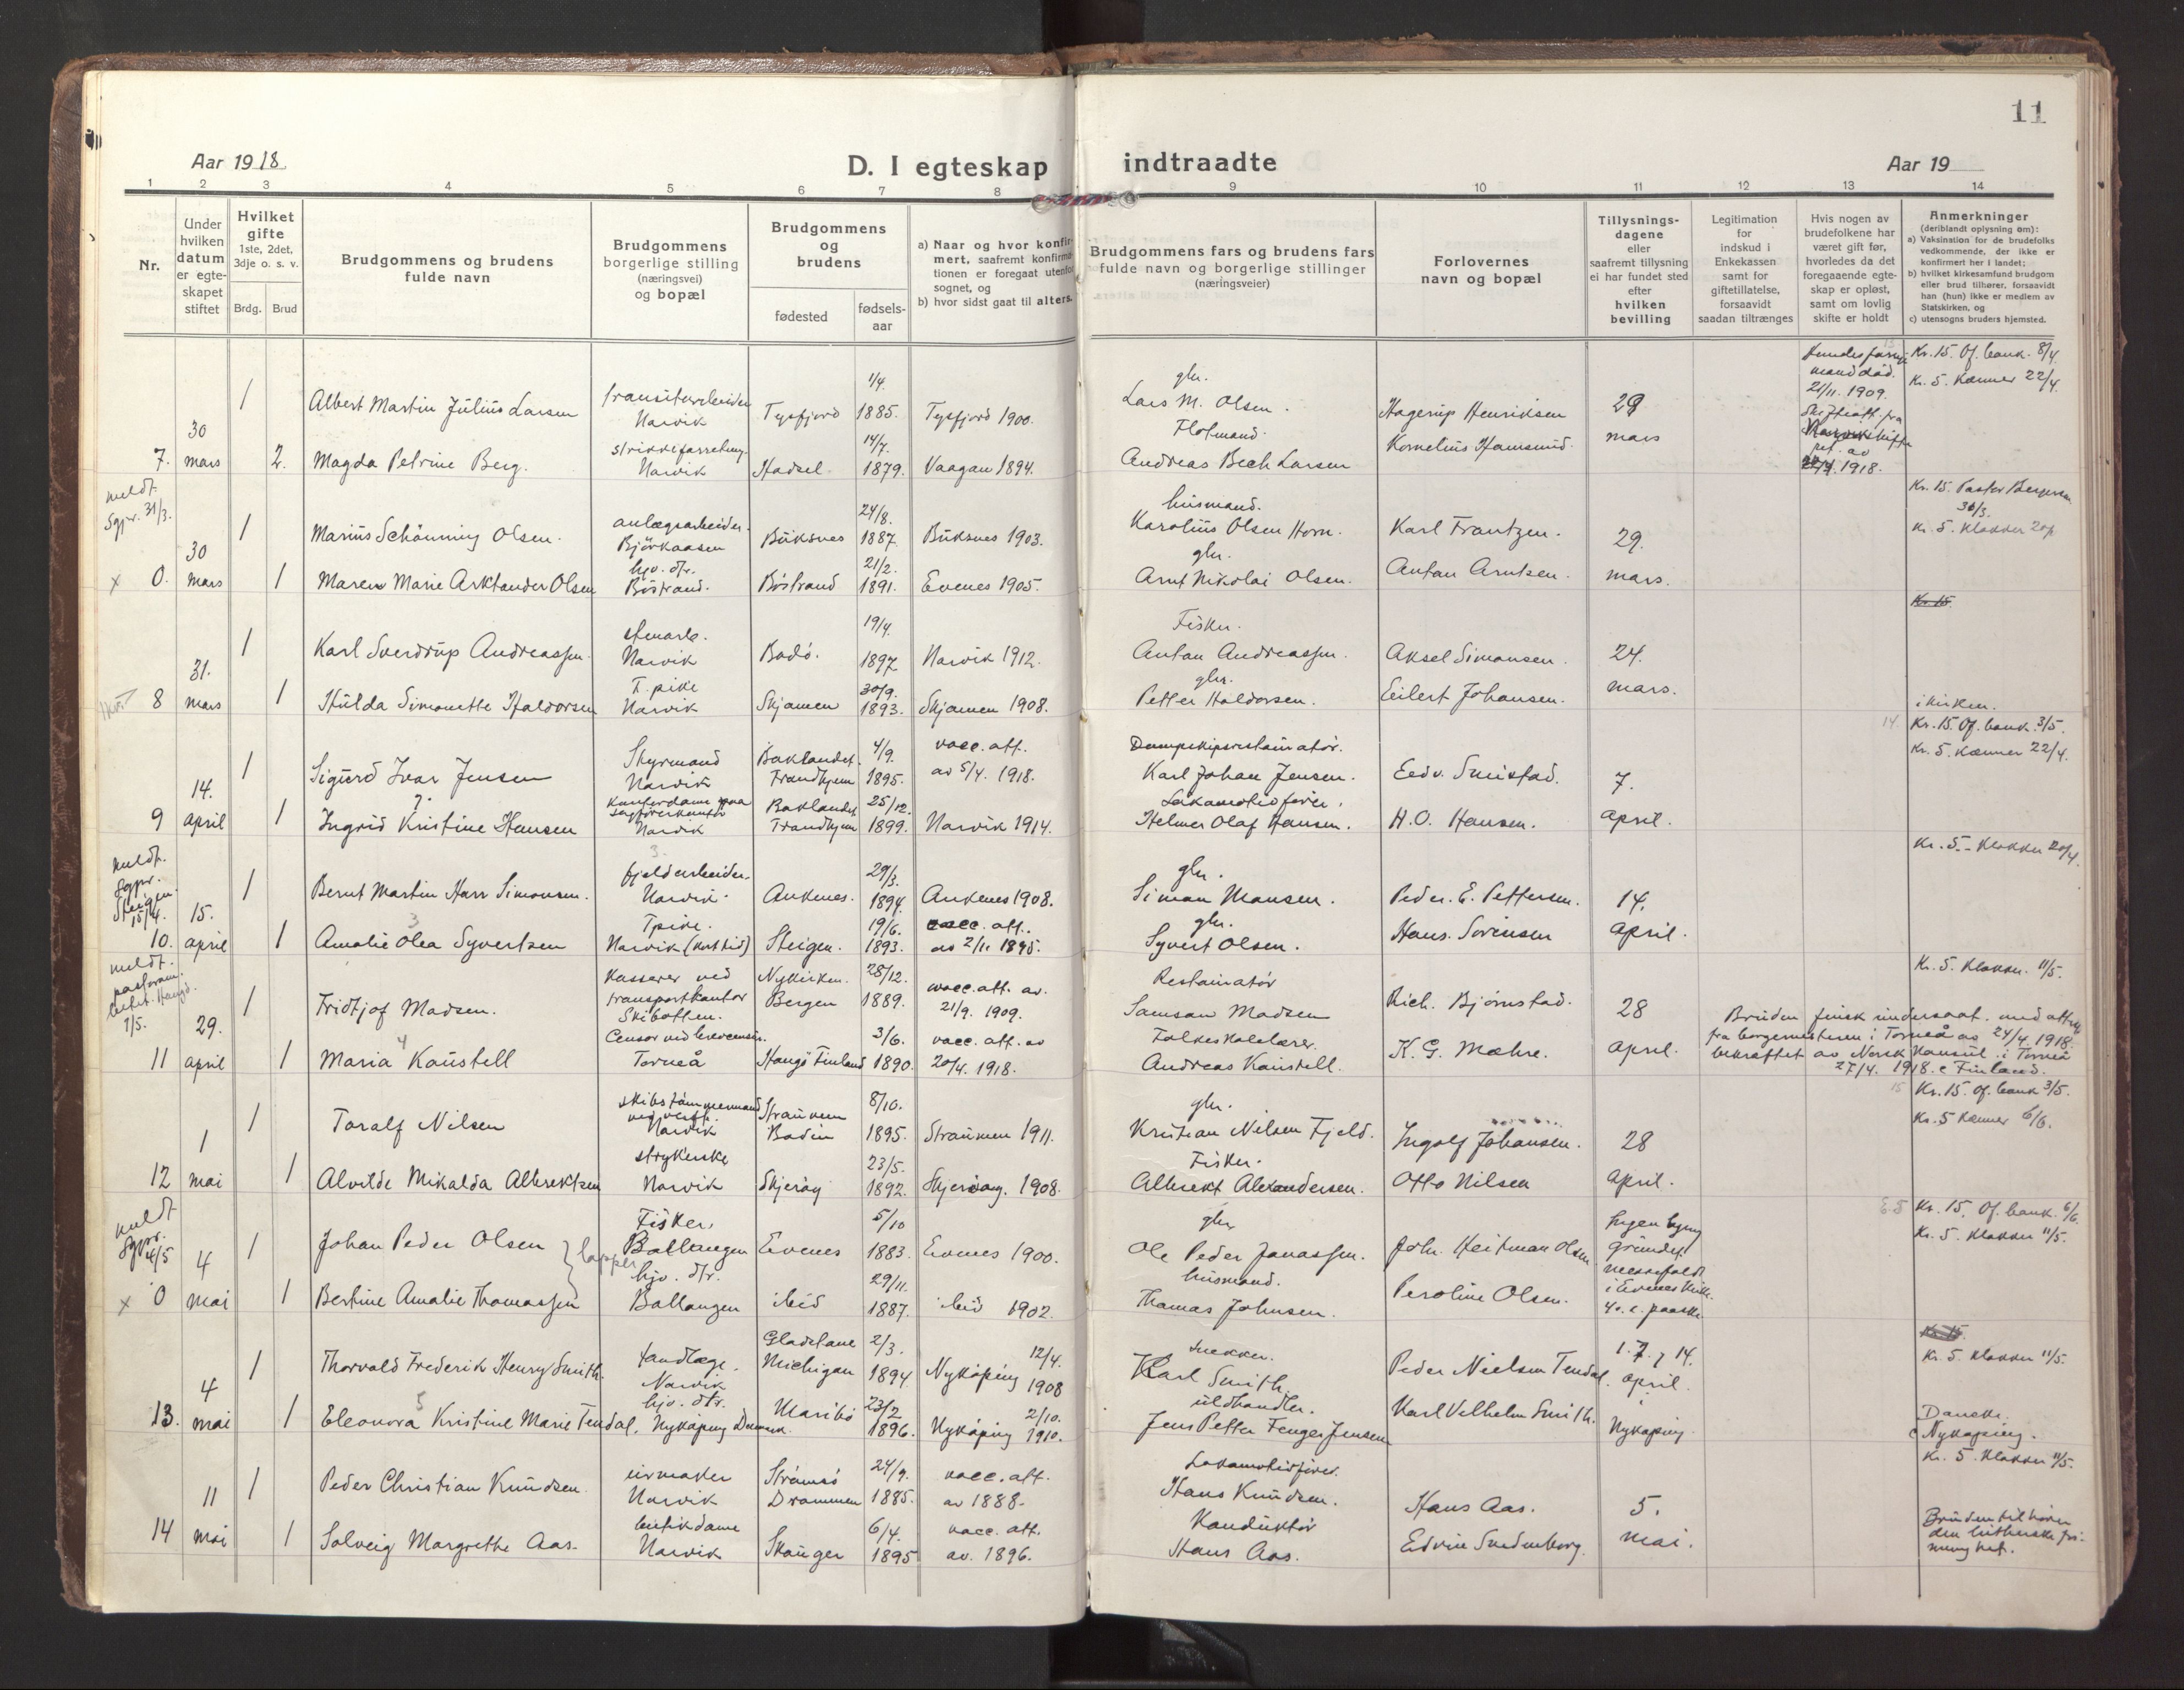 11
Aar 1918
D. I egteskap indtraadte
Aar 19
1 2 3 4 5 6 7 8 9 10 11 12 13 14
Nr.
Under hvilken datum er egteskapet stiftet
Hvilket gifte 1ste, 2det, 3dje o. s. v.
Brdg. Brud
Brudgommens og brudens fulde navn
Brudgommens borgerlige stilling (næringsvei) og bopæl
Brudgommens og brudens
fødested
fødsels-aar
a) Naar og hvor konfirmert, saafremt konfirmationen er foregaat utenfor sognet, og
b) hvor sidst gaat til alters.
Brudgommens fars og brudens fars fulde navn og borgerlige stillinger (næringsveier)
Forlovernes navn og bopæl
Tillysnings-dagene eller saafremt tillysning ei har fundet sted efter hvilken bevilling
Legitimation for indskud i Enkekassen samt for giftetillatelse, forsaavidt saadan tiltrænges
Hvis nogen av brudefolkene har været gift før, hvorledes da det foregaaende egteskap er opløst, samt om lovlig skifte er holdt
Anmerkninger (deriblandt oplysning om):
a) Vaksination for de brudefolks vedkommende, der ikke er konfirmert her i landet;
b) hvilket kirkesamfund brudgom eller brud tilhører, forsaavidt han (hun) ikke er medlem av Statskirken, og
c) utensogns bruders hjemsted.
1 Albert Martin Julius Larsen transitarbeider Narvik Tysfjord 1/4. 1885. Tysfjord 1900. gbr. Lars M. Olsen. Hagerup Henriksen 29 mars
Kr. 15. Of. bank. 8/4.
Kr. 5. Kæmner 22/4.
7. 30 mars 2. Magda Petrine Berg. Narvik Hadsel 14/7. 1879. Vaagan 1894. Flotmand. Andreas Bech Larsen Kornelius Hamsund.
mand død. 21/11. 1909. 1918.
meldt. Sgpr. 31/3.
1 Marius Schönning Olsen. anlægsarbeider. Bjørkaasen Buksnes 24/8. 1887. Buksnes 1903. husmand. Karolius Olsen Horn. Karl Frantzen. 29. mars.
Kr. 15. Pastor
Kr. 5. Klokker
x 0. 30 mars 1 Maren Marie Arktander Olsen hjv. dtr. Bøstrand. Bøstrand 21/2. 1891. Evenes 1905. gbr. Arnt Nikolai Olsen. Anton Arntsen.
Kr. 15
1 Karl Sverdrup Andreassen. Narvik Bodø. 19/4. 1897 Narvik 1912. Fisker. Anton Andreassen. Aksel Simonsen. 24. mars.
8 31. mars 1 Hulda Simonette Haldorsen T. pike Narvik Skjomen 30/9. 1893. Skjomen 1908. gbr. Petter Haldorsen. Eilert Johansen. i kirken.
14. Kr. 15. Of. bank. 3/5.
Kr. 5. Kæmner 22/4.
1 Sigurd Ivar Jensen Styrmand Narvik Baklandet. Trondhjem 4/9. 1895. vacc. att. av 5/4. 1918. Dampskipsrestauratør. Karl Johan Jensen. Edv. Smistad. 7. april.
9 14. april 1 Ingrid Kristine Hansen Kontordame paa sagførerkontor Narvik Baklandet Trondhjem 25/12. 1899. Narvik 1914. Lokomotivfører. Helmer Olaf Hansen. H. O. Hansen.
Kr. 5. - Klokker 20/4.
meldt. Sgpr. Steigen. 15/4.
1 Bernt Martin Harr Simonsen. fjeldarbeider. Narvik. Ankenes. 29/3. 1894. Ankenes 1908. gbr. Simon Monsen. Peder. E. Pettersen. 14. april.
10. 15. april 1 Amalie Olea Syvertsen T pike. Narvik (kort tid) Steigen. 19/6. 1893. vacc. att. av 2/11. 1895. gbr. Syvert Olsen. Hans. Sørensen
meldt. 1/5.
Kr. 5. Klokker. 11/5.
1 Fridtjof Madsen. Kasserer ved transportkontor Skibotten. Nykirken. Bergen 28/12. 1889. vacc. att. av. 21/9. 1909. Restauratør Samson Madsen Rich. Bjørnstad. 28 april.
Bruden finsk undersaat. med attest fra borgermesteren i Torneå av 24/4. 1918. bekræftet av Norsk Konsul. i Torneå 27/4. 1918. c Finland.
11 29. april 1 Maria Kaustell Torneå Hangö Finland 3/6. 1890. vacc. att. av 20/4. 1918. Folkeskolelærer. Andreas Kaustell. K. G. Mæhre.
15 Kr. 15. Of. bank 3/5.
Kr. 5 Kæmner 6/6.
1 Toralf Nilsen skibstømmermand ved verft. Narvik Straumen Bodin 8/10. 1895. Straumen 1911. gbr. Kristian Nilsen Fjeld. Ingolf Johansen. 28 april.
12 1 mai 1 Alvilde Mikalda Albrektsen strykerske Narvik Skjerøy 23/5. 1892. 1908. Fisker. Albrekt Alexandersen. Otto Nilsen
meldt Sgpr. 4/5
Kr. 15. Of. bank. 6/6.
Kr. 5. Klokker 11/5.
1 Johan Peder Olsen } lapper Fisker, Ballangen Evenes 5/10 1883. Evenes 1900. gbr. Ole Peder Jonassen. Joh. Heitman Olsen
Ingen lysning
x 0 4 mai 1 Bertine Amalie Thomassen hjv. dtr. Ballangen ibid 29/11. 1887. ibid 1902. husmand. Thomas Johnsen. Peroline Olsen.
Kr. 5. Klokker 11/5.
1 Thorvald Frederik Henry Smith. tandlæge. Narvik Gladstone Michigan 2/3. 1894 Nykøping 12/4. 1908 snekker. Karl Smith Peder Nielsen Tendal. 1. 7. 14. april. i Nykøping.
13. 4 mai 1 Eleonora Kristine Marie Tendal. hjv. dtr. Nykøping Danmark. Maribo 23/2 1896. Nykøping 2/10. 1910. uldhandler. Jens Petter Fenger Jensen Karl Velhelm Smith.
Danske. c Nykøping.
Kr. 5. Klokker 11/5.
1 Peder Christian Knudsen. urmaker Narvik Strømsø Drammen 24/9. 1885. vacc. att. av 1888. Lokomotivfører. Hans Knudsen. Hans Aas. 5. mai.
14 11 mai 1 Solveig Margrethe Aas. butikdame Narvik Skouger 6/4. 1895 vacc. att. av. 1896. Konduktør Hans Aas. Edvin
Bruden tilhører den lutherske frimenighet.